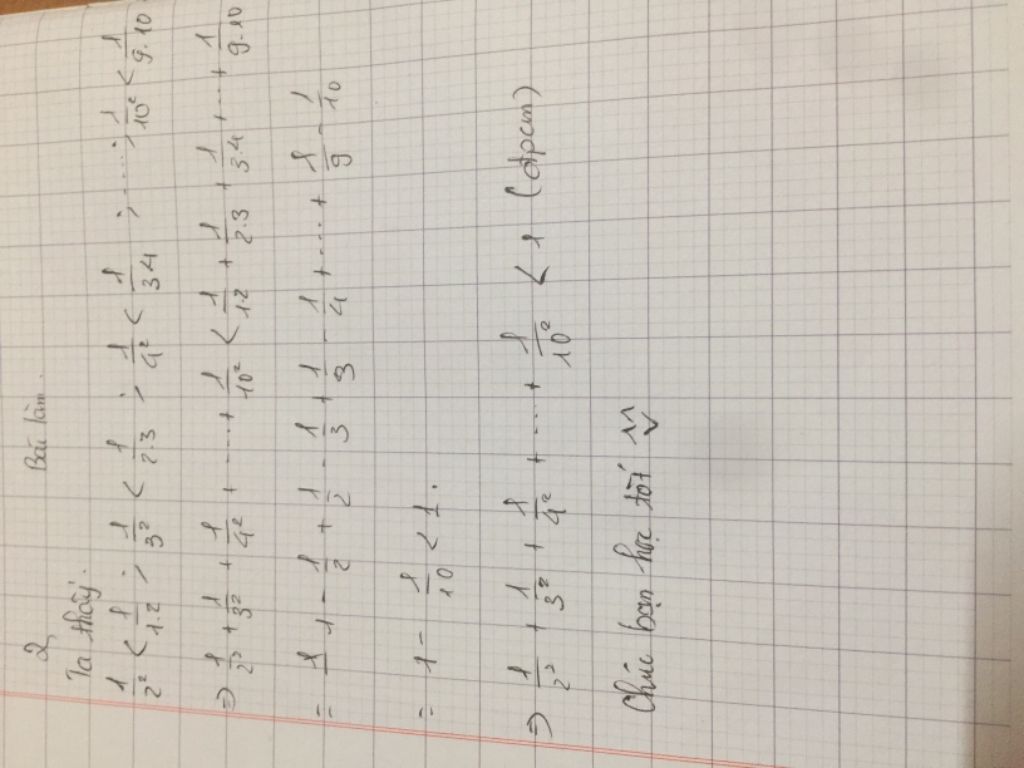 2 Bài làm.
Ta thấy:
1/2² < 1/1.2 ; 1/3² < 1/2.3 ; 1/4² < 1/3.4 ; .....; 1/10² < 1/9.10.
=> 1/2² + 1/3² + 1/4² + .... + 1/10² < 1/1.2 + 1/2.3 + 1/3.4 + .... + 1/9.10
= 1/1 - 1/2 + 1/2 - 1/3 + 1/3 - 1/4 + .... + 1/9 - 1/10
= 1 - 1/10 < 1.
=> 1/2² + 1/3² + 1/4² + .... + 1/10² < 1 (đpcm)
Chúc bạn học tốt